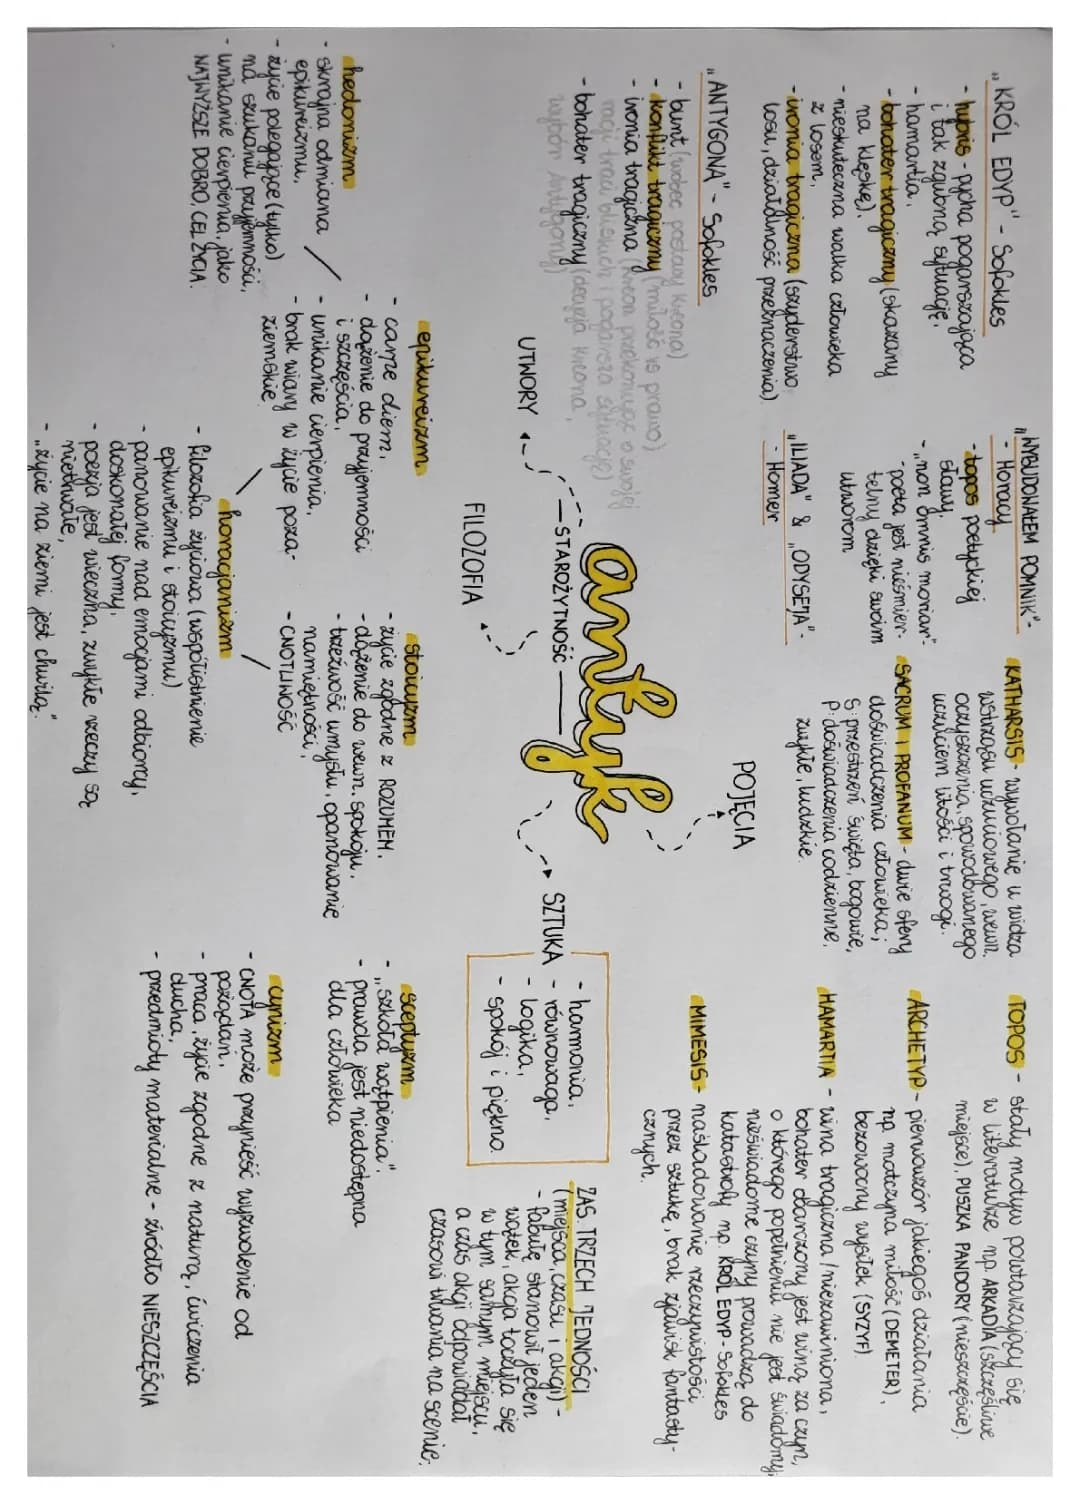 antyk
STAROŻYTNOŚĆ
UTWORY
„KRÓL EDYP" - Sofokles
- hybris - pycha pogarszająca
i tak zgubną sytuację,
- hamartia,
- bohater tragiczny (skazany
na klęskę),
- nieskuteczna walka człowieka
z losem,
- ironia tragiczna (szyderstwo
losu, działalność przeznaczenia)
„ANTYGONA" - Sofokles
- bunt (wobec postawy Kreona)
- konflikt tragiczny (miłość vs prawo)
- ironia tragiczna (Kreon przekonując o swojej
racji traci bliskich i pogarsza sytuację)
- bohater tragiczny (decyzja Kreona,
wybór Antygony)
„WYBUDOWAŁEM POMNIK" -
- Horacy
- topos poetyckiej
sławy,
- „non omnis moriar"
- poeta jest nieśmier-
telny dzięki swoim
utworom
„ILIADA" & „ODYSEJA" -
- Homer
POJĘCIA
KATHARSIS - wywołanie u widza
wstrząsu uczuciowego, wewn.
oczyszczenia, spowodowanego
uczuciem litości i trwogi.
SACRUM I PROFANUM - dwie sfery
doświadczenia człowieka;
S: przestrzeń święta, bogowie,
P: doświadczenia codzienne,
zwykłe, ludzkie.
TOPOS - stały motyw powtarzający się
w literaturze np. ARKADIA (szczęśliwe
miejsce), PUSZKA PANDORY (nieszczęście).
ARCHETYP - pierwowzór jakiegoś działania
np. matczyna miłość (DEMETER),
bezowocny wysiłek (SYZYF)
HAMARTIA - wina tragiczna / niezawiniona,
bohater obarczony jest winą za czyn,
o którego popełnieniu nie jest świadomy,
nieświadome czyny prowadzą do
katastrofy np. KRÓL EDYP - Sofokles
MIMESIS - naśladowanie rzeczywistości
przez sztukę, brak zjawisk fantasty-
cznych.
SZTUKA
- harmonia,
- równowaga,
- logika,
- spokój i piękno
ZAS. TRZECH JEDNOŚCI
(miejsca, czasu i akcji) -
- fabułę stanowił jeden
wątek, akcja toczyła się
w tym samym miejscu,
a czas akcji odpowiadał
czasowi trwania na scenie.
FILOZOFIA
epikureizm
- carpe diem,
- dążenie do przyjemności
i szczęścia,
- unikanie cierpienia,
- brak wiary w życie poza-
ziemskie
hedonizm
- skrajna odmiana
epikureizmu,
- życie polegające (tylko)
na szukaniu przyjemności,
- unikanie cierpienia, jako
NAJWYŻSZE DOBRO, CEL ŻYCIA.
stoicyzm
- życie zgodne z ROZUMEM,
- dążenie do wewn. spokoju,
- trzeźwość umysłu, opanowanie
namiętności,
- CNOTLIWOŚĆ
horacjanizm
- filozofia życiowa (współistnienie
epikureizmu i stoicyzmu)
- panowanie nad emocjami odbiorcy,
doskonałej formy,
- poezja jest wieczna, zwykłe rzeczy są
nietrwałe,
- „życie na ziemi jest chwilą."
sceptyzm
- „szkoła wątpienia",
- prawda jest niedostępna
dla człowieka
cynizm
- CNOTA może przynieść wyzwolenie od
pożądań,
- praca, życie zgodne z naturą, ćwiczenia
ducha,
- przedmioty materialne - źródło NIESZCZĘŚCIA